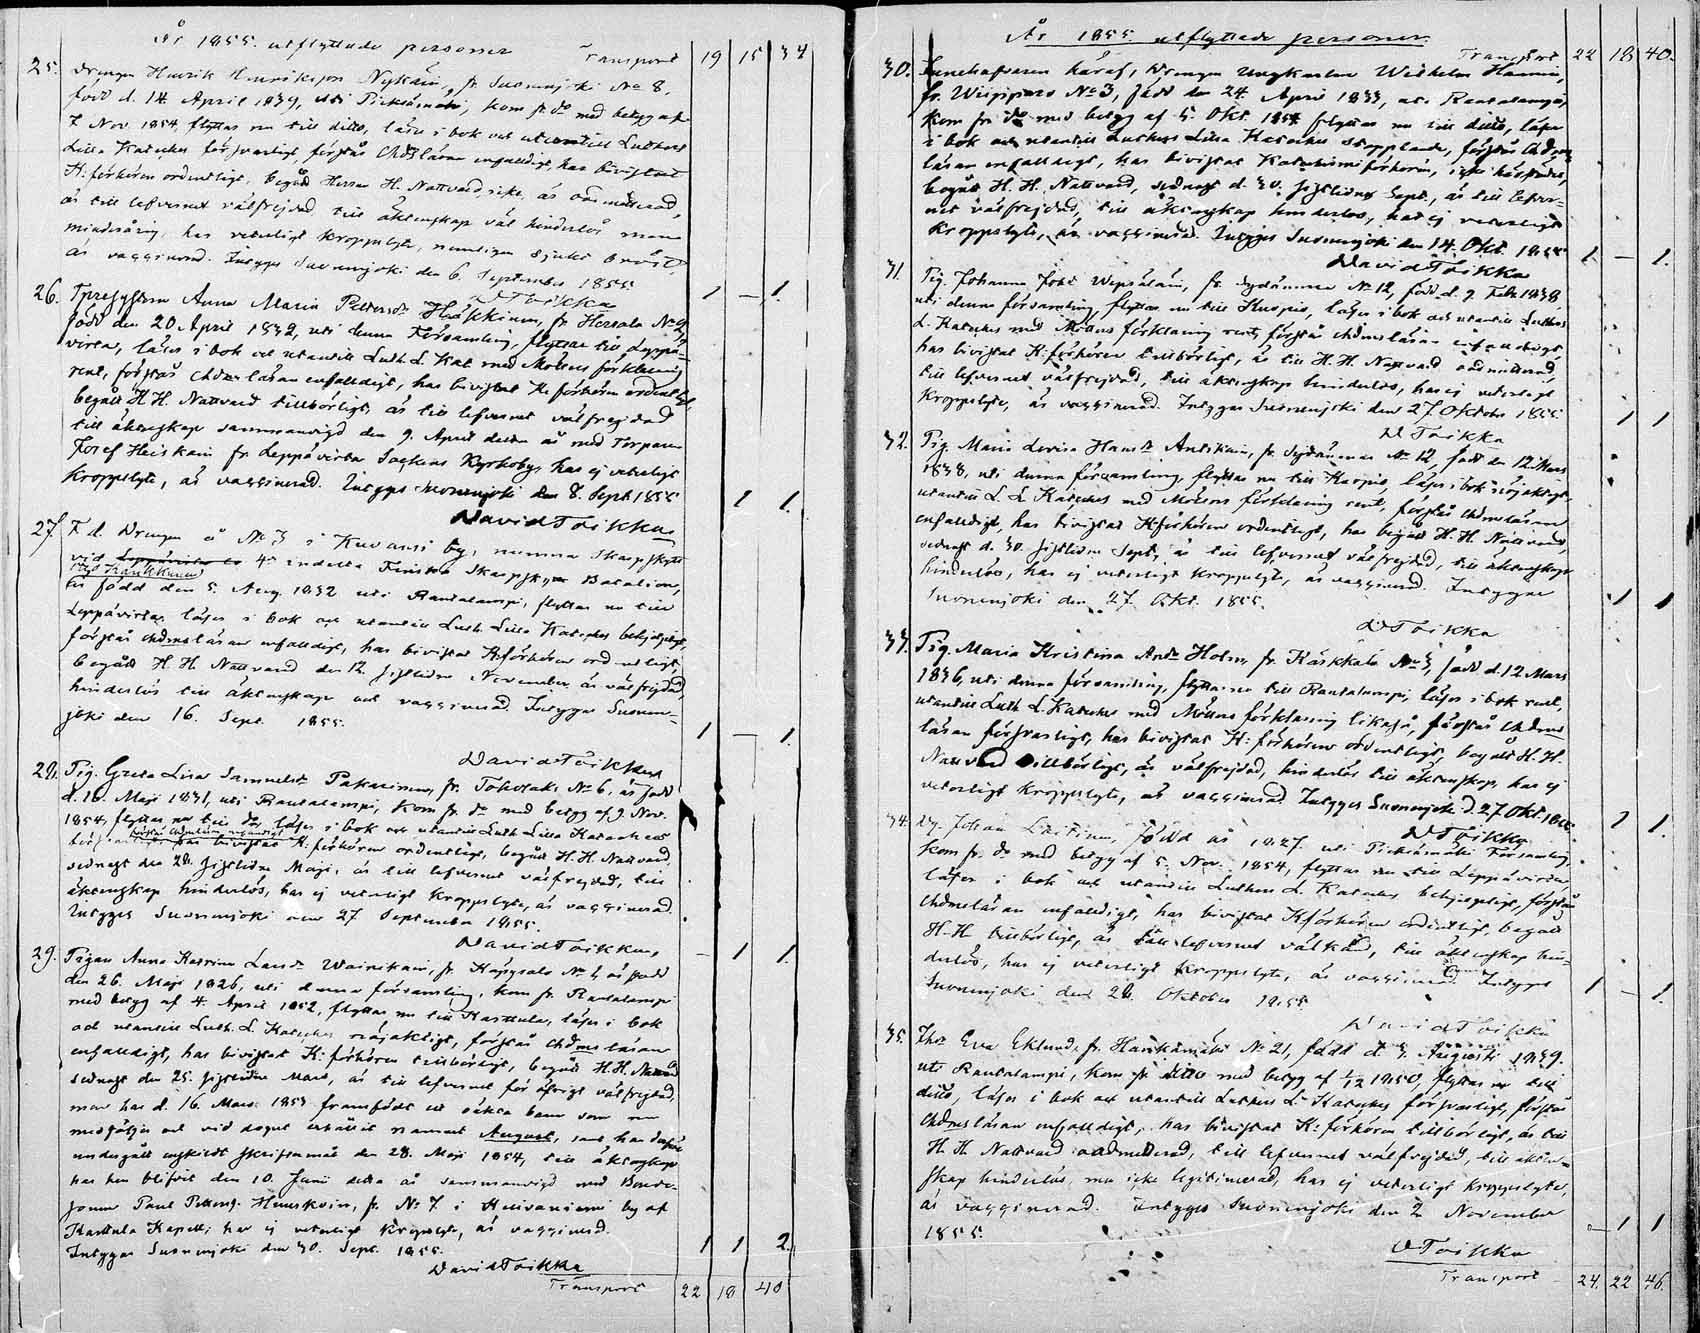 År 1855. utflyttade personer
Transport 19 15 34
25. Drengen Henrik Henriksson Nykäin, fr. Suonenjoki No 8,
född d. 14 April 1839, uti Pieksämäki, kom fr. do med betyg af
7 Nov 1854, flyttas nu till ditto, läser i bok och utantill Lutheri
Lilla Kateches försvarligt, förstår Chdslären enfalldigt, har bivistat
K: förhören ordentligt, begått Herrans H. Nattvard, icke, är oadmitterad,
är till lefvernet välfrejdad, till äktenskap väl hinderlös men
minderårig, har veterligt kroppslyte, nemligen sjukt bröst,
är vaccinerad. Intygas Suonenjoki den 6 September 1855.
DToikka 1 — 1.
26. Anna Maria Pettersdr Häkkinen, fr. Hersala No 2,
född den 20 April 1832, uti denna Församling, flyttar till Leppä-
virta, läser i bok och utantill Luth L. Kat. med Möllers förklaring
rent, förstår Chdms läran enfalldigt, har bivistat K. förhören ordentligt,
begått H. H. Nattvard tillbörligt, är till lefvernet välfrejdad
till äktenskap sammanvigd den 9. April detta år med Torparen
Josef Heiskain fr. Leppävirta Sockens Kyrkoby, har ej veterligt
kroppslyte, är vaccinerad. Intygas Suonenjoki den 8. Sept 1855
David Toikka 1 1.
27. F. d. Drengen å No 3 i Kuvansi by, numera Skarpskytt
vid 4e indelta Finska Skarpskytte Batalion,
är född den 5. Aug. 1832 uti Rautalampi, flyttar nu till
Leppävirta, läser i bok och utantill Luth. Lilla Kateches behjelpligt,
förstår chdmsläran enfalldigt, har bivistat K förhören ordentligt,
begått H. H. Nattvard den 12. sistlidne November, är välfrejdad,
hinderlös till äktenskap och vaccinerad. Intygas Suonen-
joki den 16. Sept. 1855.
David Toikka 1 — 1.
28. Pig. Greta Lisa Samuelsdr Pakarinen, fr. Toholaks No 6, är född
d. 16. Maji 1831, uti Rautalampi, kom fr. do med betyg af 9. Nov.
1854, flyttar nu till do, läser i bok och utantill Luth Lilla Kateches
har bivistat K. förhören ordentligt, begått H. H. Nattvard,
sednast den 28. sistlidne Maji, är till lefvernet välfrejdad, till
äktenskap hinderlös, har ej veterligt kroppslyte, är vaccinerad.
Intygas Suonenjoki den 27 September 1855.
David Toikka, — 1 1.
29. Pigan Anna Katrina Larsdr Wainikain, fr. No 4, är född
den 26. Maji 1826, uti denna församling, kom fr. Rautalampi
med betyg af 4. April 1852, flyttar nu till Karttula, läser i bok
och utantill Luth. L. Kateches nöjaktigt, förstår Chdmsläran
enfalldigt, har bivistat K: förhören tillbörligt, begått H.H. Nattvard
sednast den 25. sistlidne Mars, är till lefvernet för öfrigt välfrejdad,
men har d. 16. Mars 1853 framfödt ett oäkta barn som nu
medföljer och vid dopet erhållit namnet August, samt har derföre
undergått enskildt skriftermål den 28. Maji 1854, till äktenskap
har hon blifvit den 10. Juni detta år sammanvigd med Bonde-
sonen Paul Petterss. Hunskoin, fr. No 7 i by af
Karttula Kapell; har ej veterligt kroppslyte, är vaccinerad.
Intygas Suonenjoki den 30. Sept. 1855.
David Toikka 1 1 2.
Transport 22 18 40
År 1855 utflyttade personer.
Transport 22 18 40.
30. Innehafvaren häraf, Drengen Ungkarlen Wilhelm
fr. No 3, född den 24. April 1833, uti Rautalampi,
kom fr. do med betyg af 5. Okt. 1854 flyttar nu till ditto, läser
i bok och utantill Lutheri Lilla Kateches stapplande, förstår Chdms
läran enfalldigt, har bivistat Katechismi förhören, icke
begått H. H. Nattvard, sednast d. 30. sistlidne Sept., är till lefver-
net välfrejdad, till äktenskap hinderlös, har ej veterligt
kroppslyte, är vaccinerad. Intygas Suonenjoki den 14. Okt. 1855
David Toikka 1 — 1.
31. Pig. Johanna Johsdr Wepsäläin, fr. Sydänmaa No 12, född d. 9. Feb. 1838
uti denna församling, flyttar nu till Kuopio, läser i bok och utantill Lutheri
L. Kateches med Möllers förklaring rent, förstår Chdmsläran enfalldigt
har bivistat K: förhören tillbörligt, är till H. H. Nattvard oadmitterad
till lefvernet välfrejdad, till äktenskap hinderlös, har ej veterligt
kroppslyte, är vaccinerad. Intygas Suonenjoki den 27. Oktober 1855.
DToikka 1 1
32. Pig. Maria Lovisa Hansdr Antikain, fr. Sydänmaa No 12, född den 12. Mars
1838, uti denna församling, flyttar nu till Kuopio, läser i bok nöjaktigt
utantill L. L Kateches med Möllers förklaring rent, förstår Chdmsläran
enfalldigt, har bivistat K:förhören ordentligt, har begått H. H. Nattvard,
sednast d. 30. sistlidne Sept, är till lefvernet välfrejdad, till äktenskap
hinderlös, har ej veterligt kroppslyte, är vaccinerad. Intygas
Suonenjoki den 27. Okt. 1855.
DToikka 1 1
33. Pig. Maria Kristina Andsdr Holm, fr. Kärkkälä No 3, född d. 12 Mars
1836, uti denna församling, flyttar nu till Rautalampi, läser i bok rent,
utantill Luth L. Kateches med Möllers förklaring likaså, förstår Chdms
läran försvarligt, har bivistat K: förhören ordentligt, begått H. H.
Nattvard tillbörligt, är välfrejdad, hinderlös till äktenskap, har ej
veterligt kroppslyte, är vaccinerad. Intygas Suonenjoki d. 27 Okt. 1855
DToikka 1 1.
34. Dr. Johan Laitinen, född år 1827. uti Pieksämäki Församling,
kom fr. do med betyg af 5. Nov. 1854, flyttar nu till Leppävirta,
läser i bok och utantill Lutheri L. Kateches behjelpligt, förstår
Chdmsläran enfalldigt, har bivistat Kförhören ordentligt, begått
H. H. tillbörligt, är till lefvernet välkänd, till äktenskap hin-
derlös, har ej veterligt kroppslyte, är vaccinerad. Intygas
Suonenjoki den 28. Oktober 1855
David Toikka 1 — 1.
35. Eva Eklund, fr. Hankamäki No 21, född d. 3. Augusti 1839.
uti Rautalampi, kom fr. ditto med betyg af 1/12 1850, flyttar nu till
ditto, läser i bok och utantill Lutheri L. Kateches försvarligt, förstår
Chdmsläran enfalldigt, har bivistat K: förhören tillbörligt, är till
H. H. Nattvard oadmitterad, till lefvernet välfrejdad, till äkten-
skap hinderlös, men icke legitimerad, har ej veterligt kroppslyte,
är vaccinerad. Intygas Suonenjoki den 2 November
1855.
DToikka — 1 1
Transport 24. 22 46.